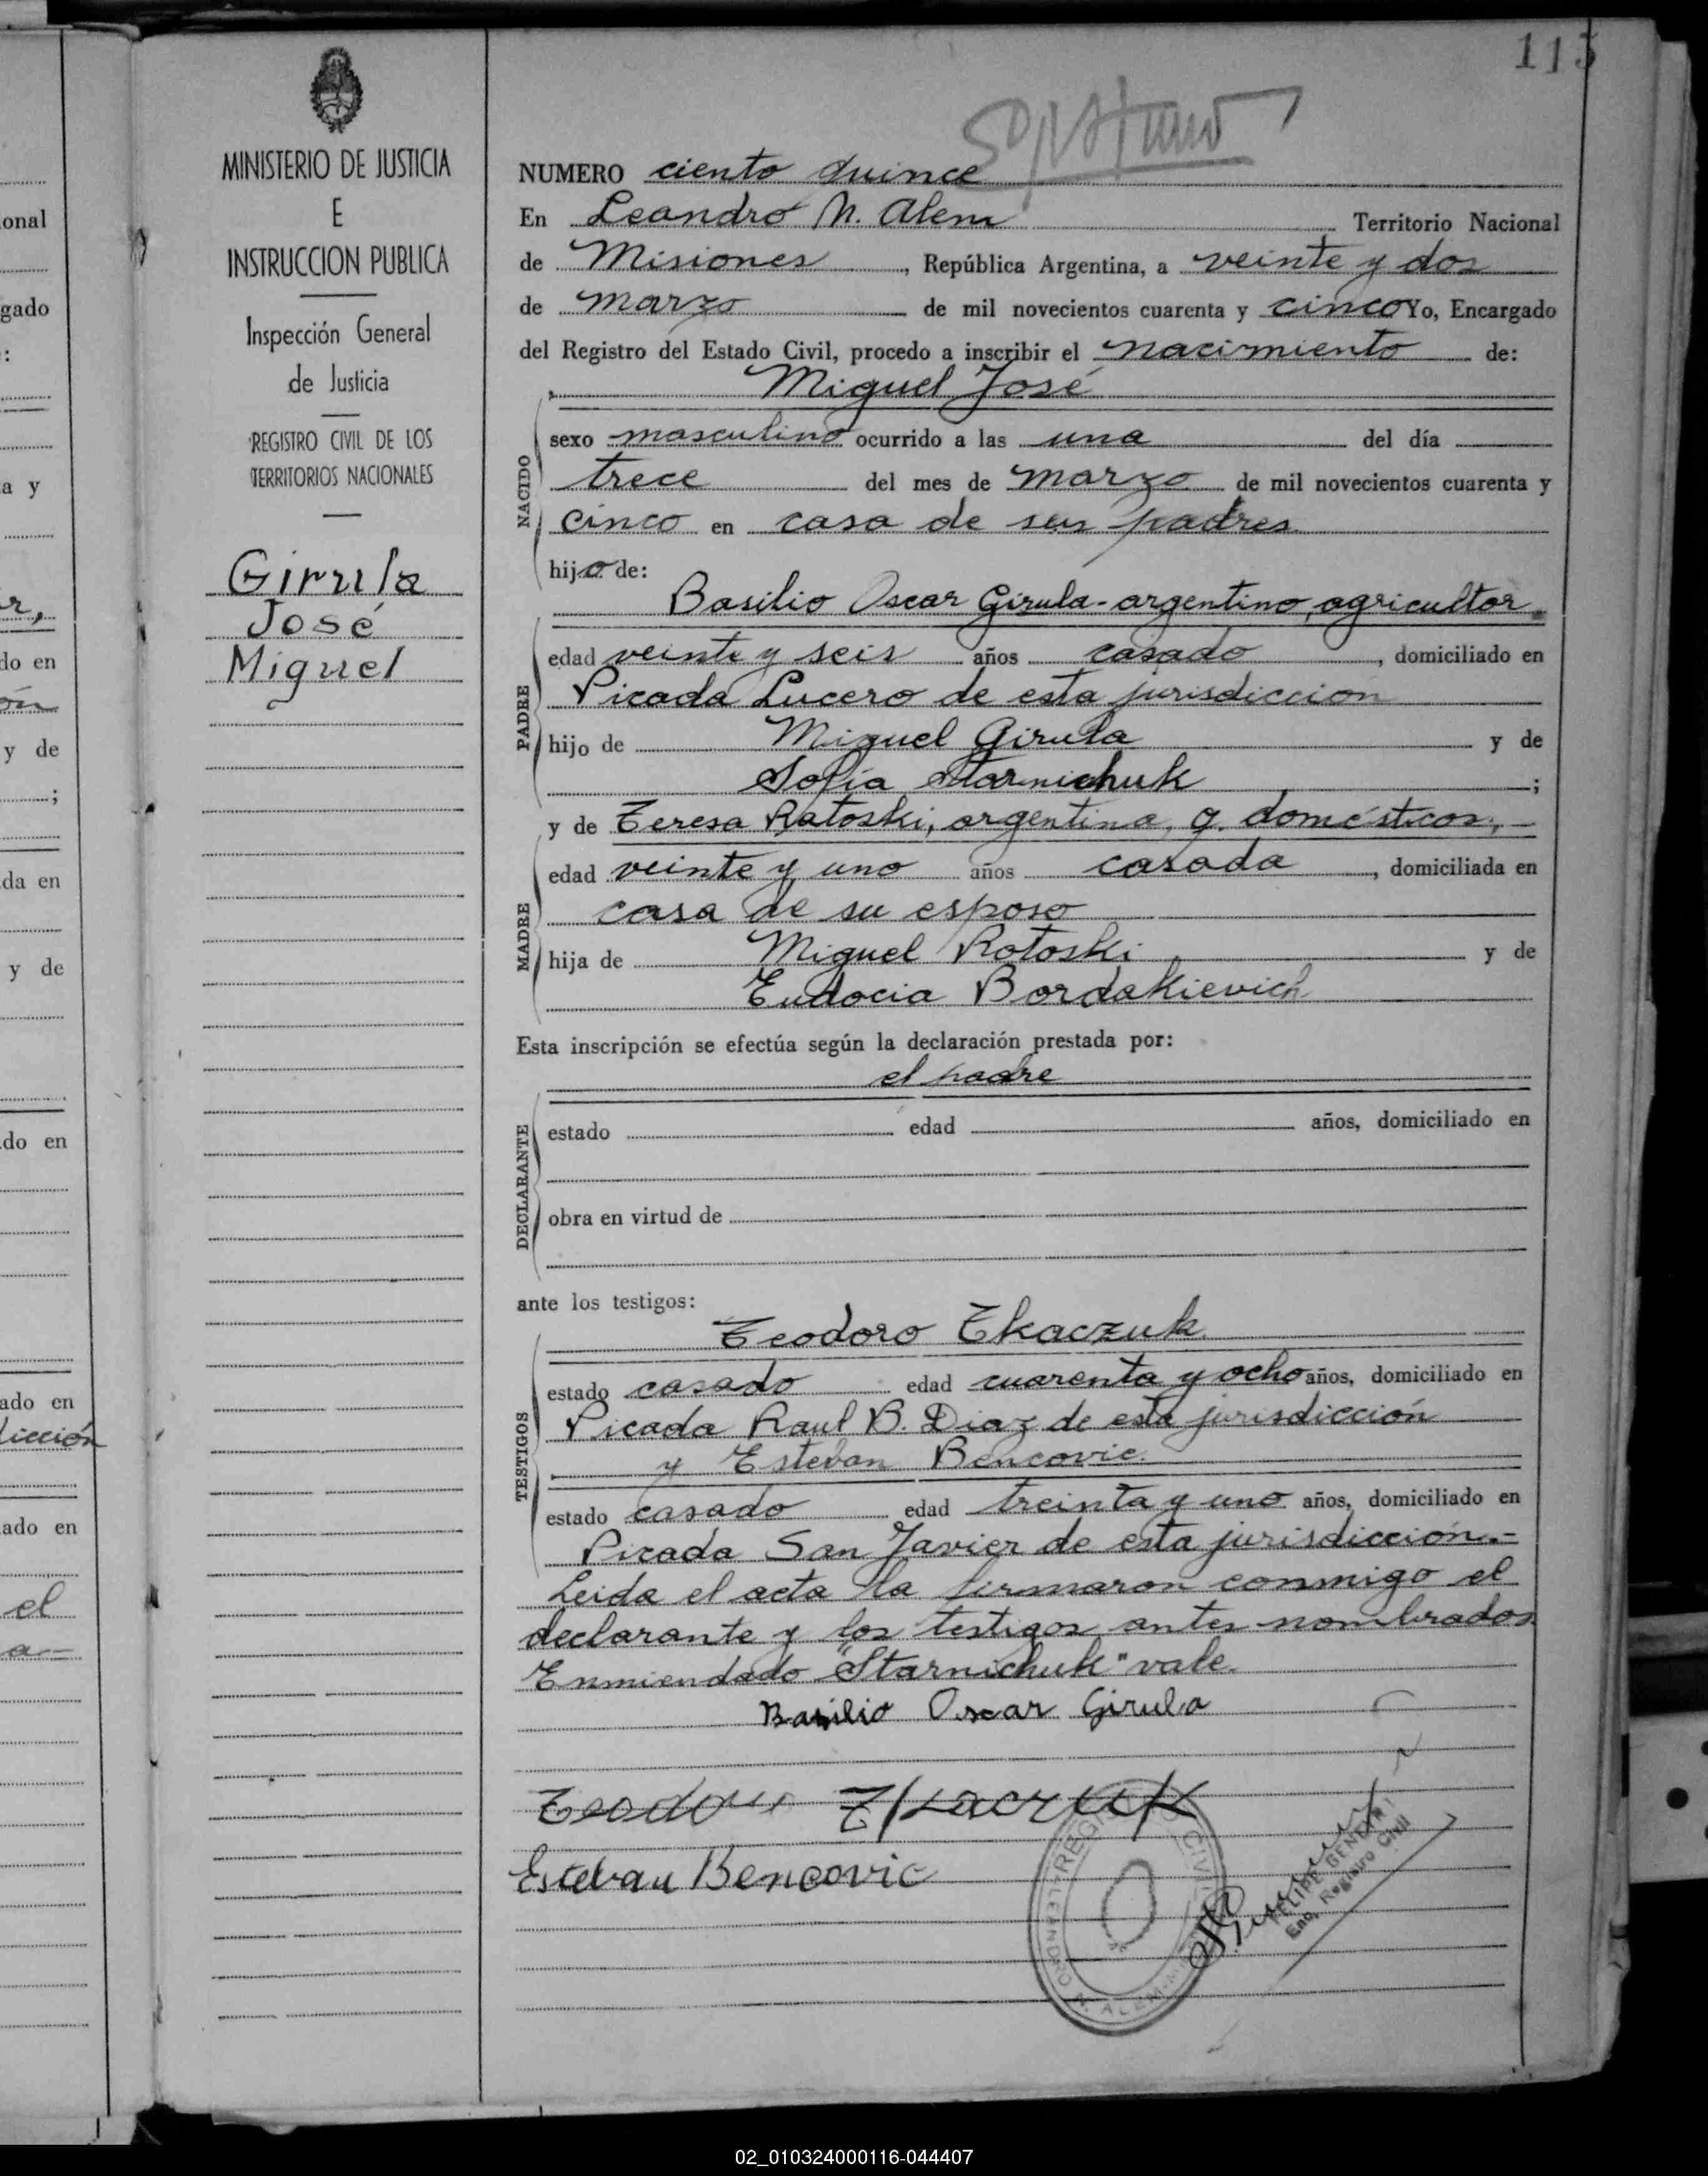 115
MINISTERIO DE JUSTICIA
E
INSTRUCCION PUBLICA
Inspección General
de Justicia
REGISTRO CIVIL DE LOS
TERRITORIOS NACIONALES
Girula
José
Miguel
NUMERO ciento quince
En Leandro N. Alem Territorio Nacional
de Misiones, República Argentina, a veinte y dos
de marzo de mil novecientos cuarenta y cinco Yo, Encargado
del Registro del Estado Civil, procedo a inscribir el nacimiento de:
Miguel José
NACIDO
sexo masculino ocurrido a las una del día
trece del mes de marzo de mil novecientos cuarenta y
cinco en casa de sus padres
hijo de:
Basilio Oscar Girula - argentino, agricultor
PADRE
edad veinte y seis años casado, domiciliado en
Picada Lucero de esta jurisdiccion
hijo de Miguel Girula y de
Sofía Starnichuk;
y de Teresa Ratoski, argentina, q. domésticos,
MADRE
edad veinte y uno años casada, domiciliada en
casa de su esposo
hija de Miguel Rotoski y de
Eudocia Bordakievich
Esta inscripción se efectúa según la declaración prestada por:
el padre
DECLARANTE
estado edad años, domiciliado en
obra en virtud de
ante los testigos:
Teodoro Tkaczuk
TESTIGOS
estado casado edad cuarenta y ocho años, domiciliado en
Picada Raul B. Diaz de esta jurisdicción
y Esteban Bencovic.
estado casado edad treinta y uno años, domiciliado en
Picada San Javier de esta jurisdicción.-
Leida el acta la firmaron conmigo el
declarante y los testigos antes nombrados
Enmendado "Starnichuk" vale.
Basilio Oscar Girula
Teodoro Tkaczuk
Esteban Bencovic
REGISTRO CIVIL
LEANDRO N. ALEM
FELIPE GENEYRI
Enc. Registro Civil
onal
gado
:
a y
do en
y de
;
da en
y de
do en
ado en
dicción
ado en
el
a-
02_010324000116-044407